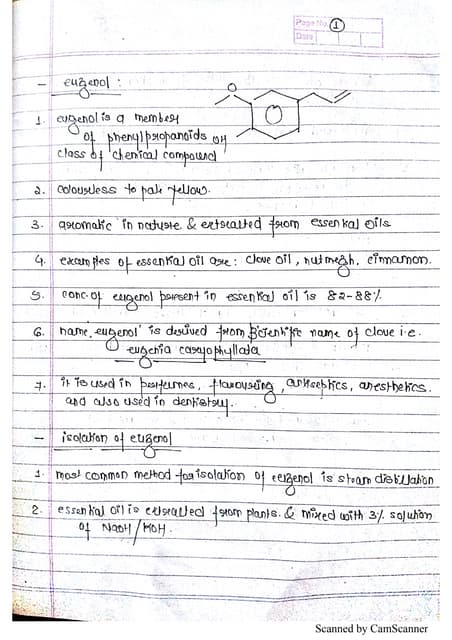 Page No. 1
Date
- eugenol :
O
1. eugenol is a member
of phenylpropanoids OH
class of 'chemical compound'
2. colourless to pale yellow.
3. aromatic in nature & extracted from essential oils
4. examples of essential oil are : clove oil, nutmegh, cinnamon.
5. conc. of eugenol present in essential oil is 82-88%
6. name 'eugenol' is derived from scientific name of clove i.e.
eugenia caryophyllata
7. it is used in perfumes, flavouring, antiseptics, anesthetics.
and also used in dentistry.
- isolation of eugenol
1. most common method for isolation of eugenol is steam distillation
2. essential oil is extracted from plants. & mixed with 3% solution
of NaOH / KOH.
Scanned by CamScanner